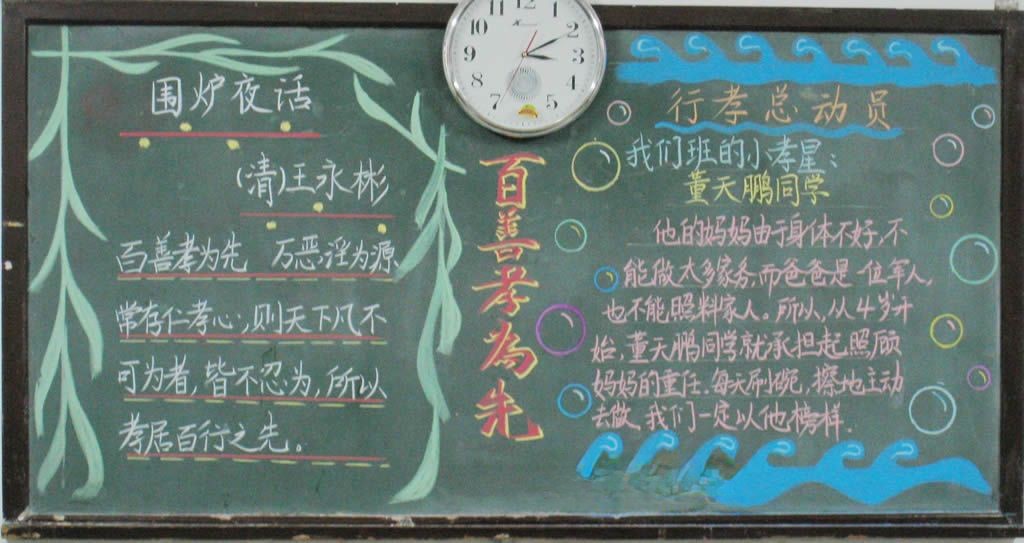 围炉夜话
(清)王永彬
百善孝为先 万恶淫为源
常存仁孝心,则天下凡不
可为者,皆不忍为,所以
孝居百行之先。
11 12
10 2
9 3
8
7 5
百善孝為先
行孝总动员
我们班的小孝星:
董天鹏同学
他的妈妈由于身体不好,不
能做太多家务,而爸爸是一位军人,
也不能照料家人。所以,从4岁开
始,董天鹏同学就承担起照顾
妈妈的重任.每天刷碗,擦地主动
去做.我们一定以他榜样.